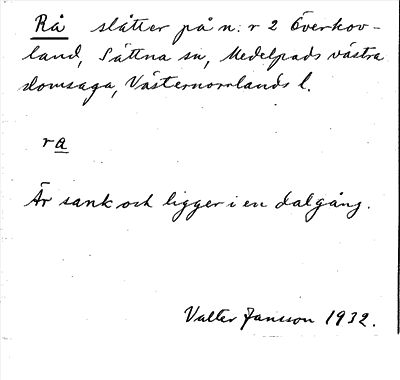 Rå slåtter på n. r 2 Överkov-
land, Sättna sn, Medelpads västra
domsaga, Västernorrlands l.
ra
Är sank och ligger i en dalgång.
Valter Jansson 1932.